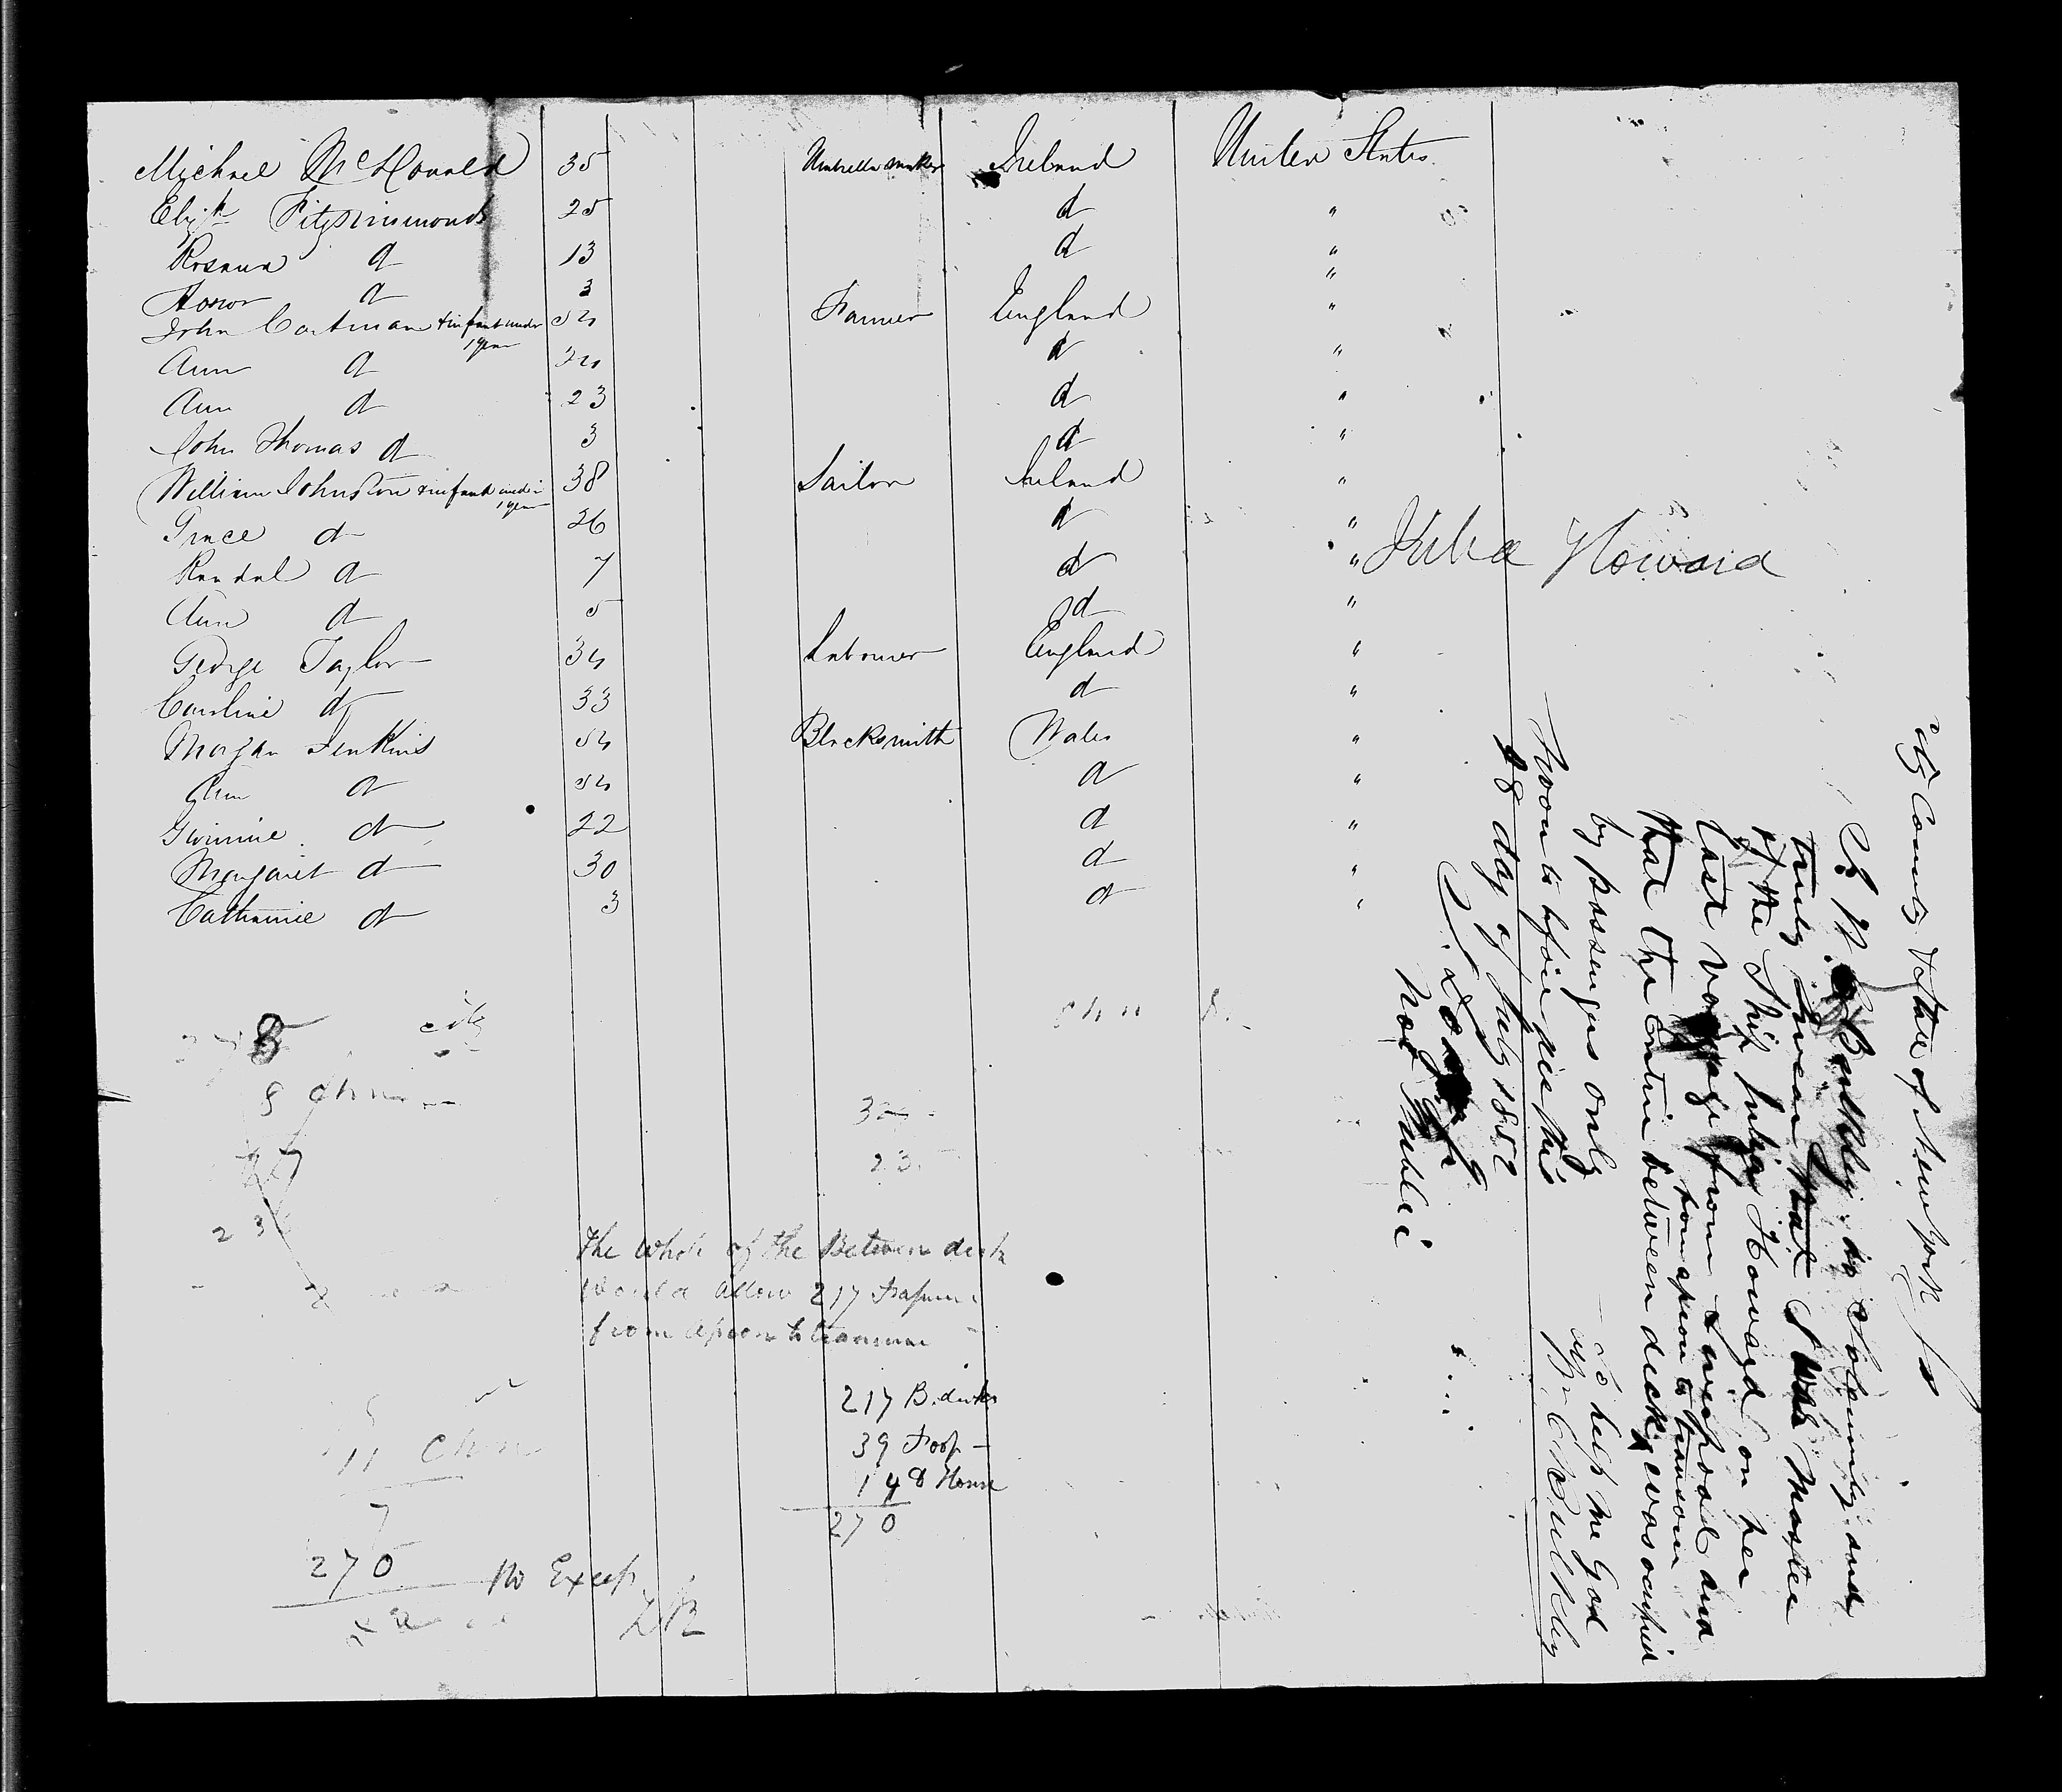 Michael McDonald 35 Umbrella maker Ireland United States
Elizth Fitzsimmonds 25 d "
Rosanna d 13 d "
Honor d 3 "
John Cartman + infant under 1 year 54 Farmer England "
Ann d d "
Ann d 23 d "
John Thomas d 3 d "
William Johnston + infant under 1 year 38 Sailor Ireland "
Grace d 36 d "
Randal d 7 d "
Ann d 5 d "
George Taylor 34 Labourer England "
Caroline d 33 d "
Morgan Jenkins 54 Blacksmith Wales "
Ann d 54 d "
Gwinnie d 22 d "
Margaret d 30 d "
Catharine d 3 d "
Julia Howard
8
8 Chn
23
The whole of the Between deck
would allow 217 Passen
from apron to transom
217 B. decks
39 Poop
14 House
270
11 Chn
7
270
No Excess
City County & State of New York ss
C. M. Bulkley do solemnly and
truly swear that I was Master
of the Ship Julia Howard on her
last voyage from Liverpool and
that the entire between decks from apron to transom was occupied
by passengers only
So help me God
C. M. Bulkley
Sworn to before me this
28 day of July 1852
Not Public